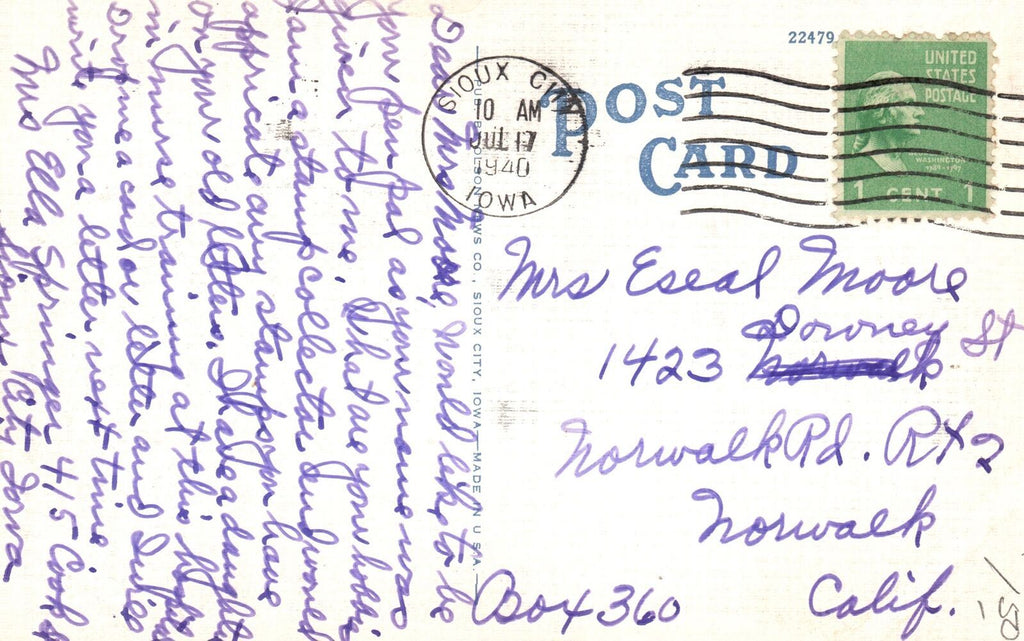 Dear Mrs Moore, Would like to be
your pen pal as your name was
given to me. What are your hobbies
I am a stamp collector And would
appricate any stamps you have
or your old letters. I have a daughter
in nurse training at this
Drop me a card or letter and I will
write you a letter next time
Mrs Ella Springer 415 Cook
Sioux City Iowa
PUB. BY OLSON NEWS CO., SIOUX CITY, IOWA—MADE IN U.S.A.
22479
POST
CARD
SIOUX CITY
10 AM
JUL 17
1940
IOWA
UNITED
STATES
POSTAGE
WASHINGTON
1789-1797
1 CENT 1
Mrs Eseal Moore
Downey St
1423 Norwalk
Norwalk Rd. Rt 2
Norwalk
Box 360 Calif.